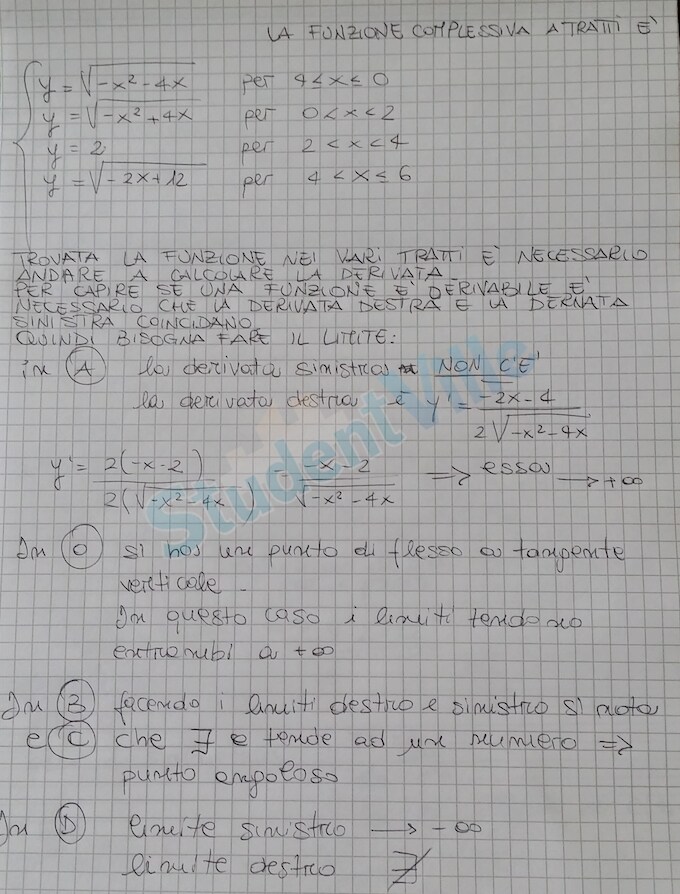 LA FUNZIONE COMPLESSIVA A TRATTI E'
y = √(-x² - 4x) per 4 ≤ x ≤ 0
y = √(-x² + 4x) per 0 < x < 2
y = 2 per 2 < x < 4
y = √(-2x + 12) per 4 < x ≤ 6
TROVATA LA FUNZIONE NEI VARI TRATTI E' NECESSARIO
ANDARE A CALCOLARE LA DERIVATA
PER CAPIRE SE UNA FUNZIONE E' DERIVABILE E'
NECESSARIO CHE LA DERIVATA DESTRA E LA DERIVATA
SINISTRA COINCIDANO
QUINDI BISOGNA FARE IL LIMITE:
in A la derivata sinistra NON C'E'
la derivata destra è y' = (-2x - 4) / (2√(-x² - 4x))
y' = 2(-x-2) / 2(√(-x² - 4x)) = (-x - 2) / √(-x² - 4x) => essa → +∞
In O si ha un punto di flesso a tangente
verticale
In questo caso i limiti tendono
entrambi a +∞
In B facendo i limiti destro e sinistro si nota
e C che ∃ e tende ad un numero =>
punto angoloso
In D limite sinistro → -∞
limite destro ∄
StudentVille